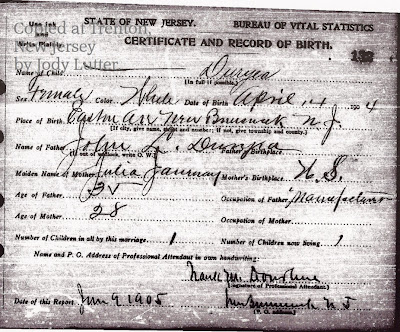 Use ink
Write Plainly
Copied at Trenton,
New Jersey
by Jody Lutter
STATE OF NEW JERSEY.
BUREAU OF VITAL STATISTICS
CERTIFICATE AND RECORD OF BIRTH.
Name of Child Duryea
(In full if possible.)
Sex Female Color White Date of Birth April 14 1904
Place of Birth Easton Ave New Brunswick N.J.
(If city, give name, street and number; if not, give township and county.)
Name of Father John Duryea
(If out of wedlock, write O. W.) Father's Birthplace
Maiden Name of Mother Julia Mother's Birthplace U.S.
Age of Father Occupation of Father Manufacturer
Age of Mother 28 Occupation of Mother
Number of Children in all by this marriage 1 Number of Children now living 1
Name and P. O. Address of Professional Attendant in own handwriting:
M. Donohue
(Signature of Professional Attendant.)
Date of this Report June 9 1905 New Brunswick N J
(P. O. address.)